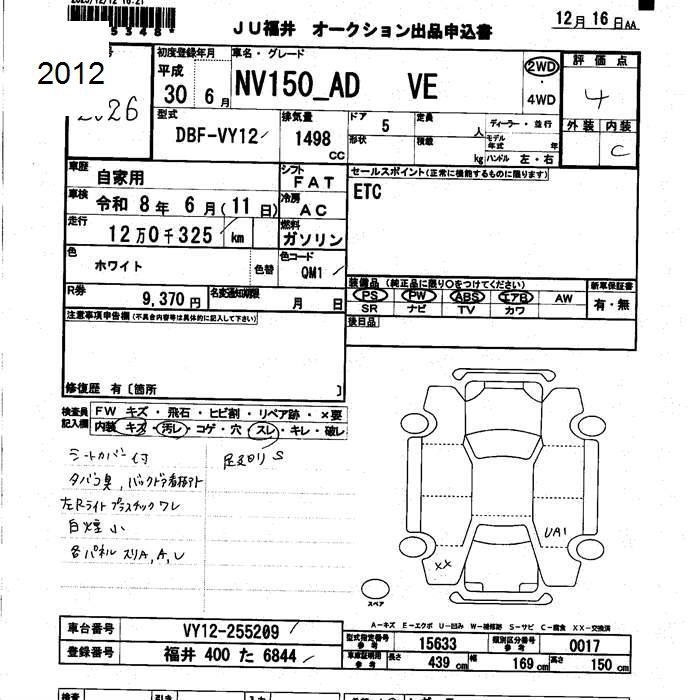 2025/12/12 16:21
5348*
JU福井 オークション出品申込書
12月16日AA
2012
初度登録年月
平成
30 6月
車名・グレード
NV150_AD VE
2WD
4WD
評価点
4
外装 内装
C
型式
DBF-VY12
排気量
1498
CC
ドア
5
形状
定員
人
積載
kg
ディーラー・並行
モデル年式 年
ハンドル 左・右
車歴
自家用
車検
令和 8年 6月(11日)
走行
12万0千325 km
シフト
FAT
冷房
AC
燃料
ガソリン
セールスポイント(正常に機能するものに限ります)
ETC
色
ホワイト
色替
色コード
QM1
R券
9,370円
名変通知期限
月 日
装備品 (純正品に限り○をつけてください)
PS PW ABS エアB AW
SR ナビ TV カワ
新車保証書
有・無
後日品
注意事項申告欄(不具合内容等は具体的に記入して下さい)
修復歴 有〔箇所 〕
検査員記入欄
FW キズ・飛石・ヒビ割・リペア跡・×要
内装 キズ・汚レ・コゲ・穴・スレ・キレ・破レ
シートカバー付
足回りS
タバコ臆,バックドア
左Rライトプラスチックワレ
白煙小
各パネルスリA,A,U
UA1
XX
スペア
A-キズ E-エクボ U-凹み W-補修跡 S-サビ C-腐食 XX-交換済
車台番号
VY12-255209
登録番号
福井 400 た 6844
型式指定番号
参考
15633
類別区分番号
参考
0017
車庫証明用
参考
長さ
439 cm
幅
169 cm
高さ
150 cm